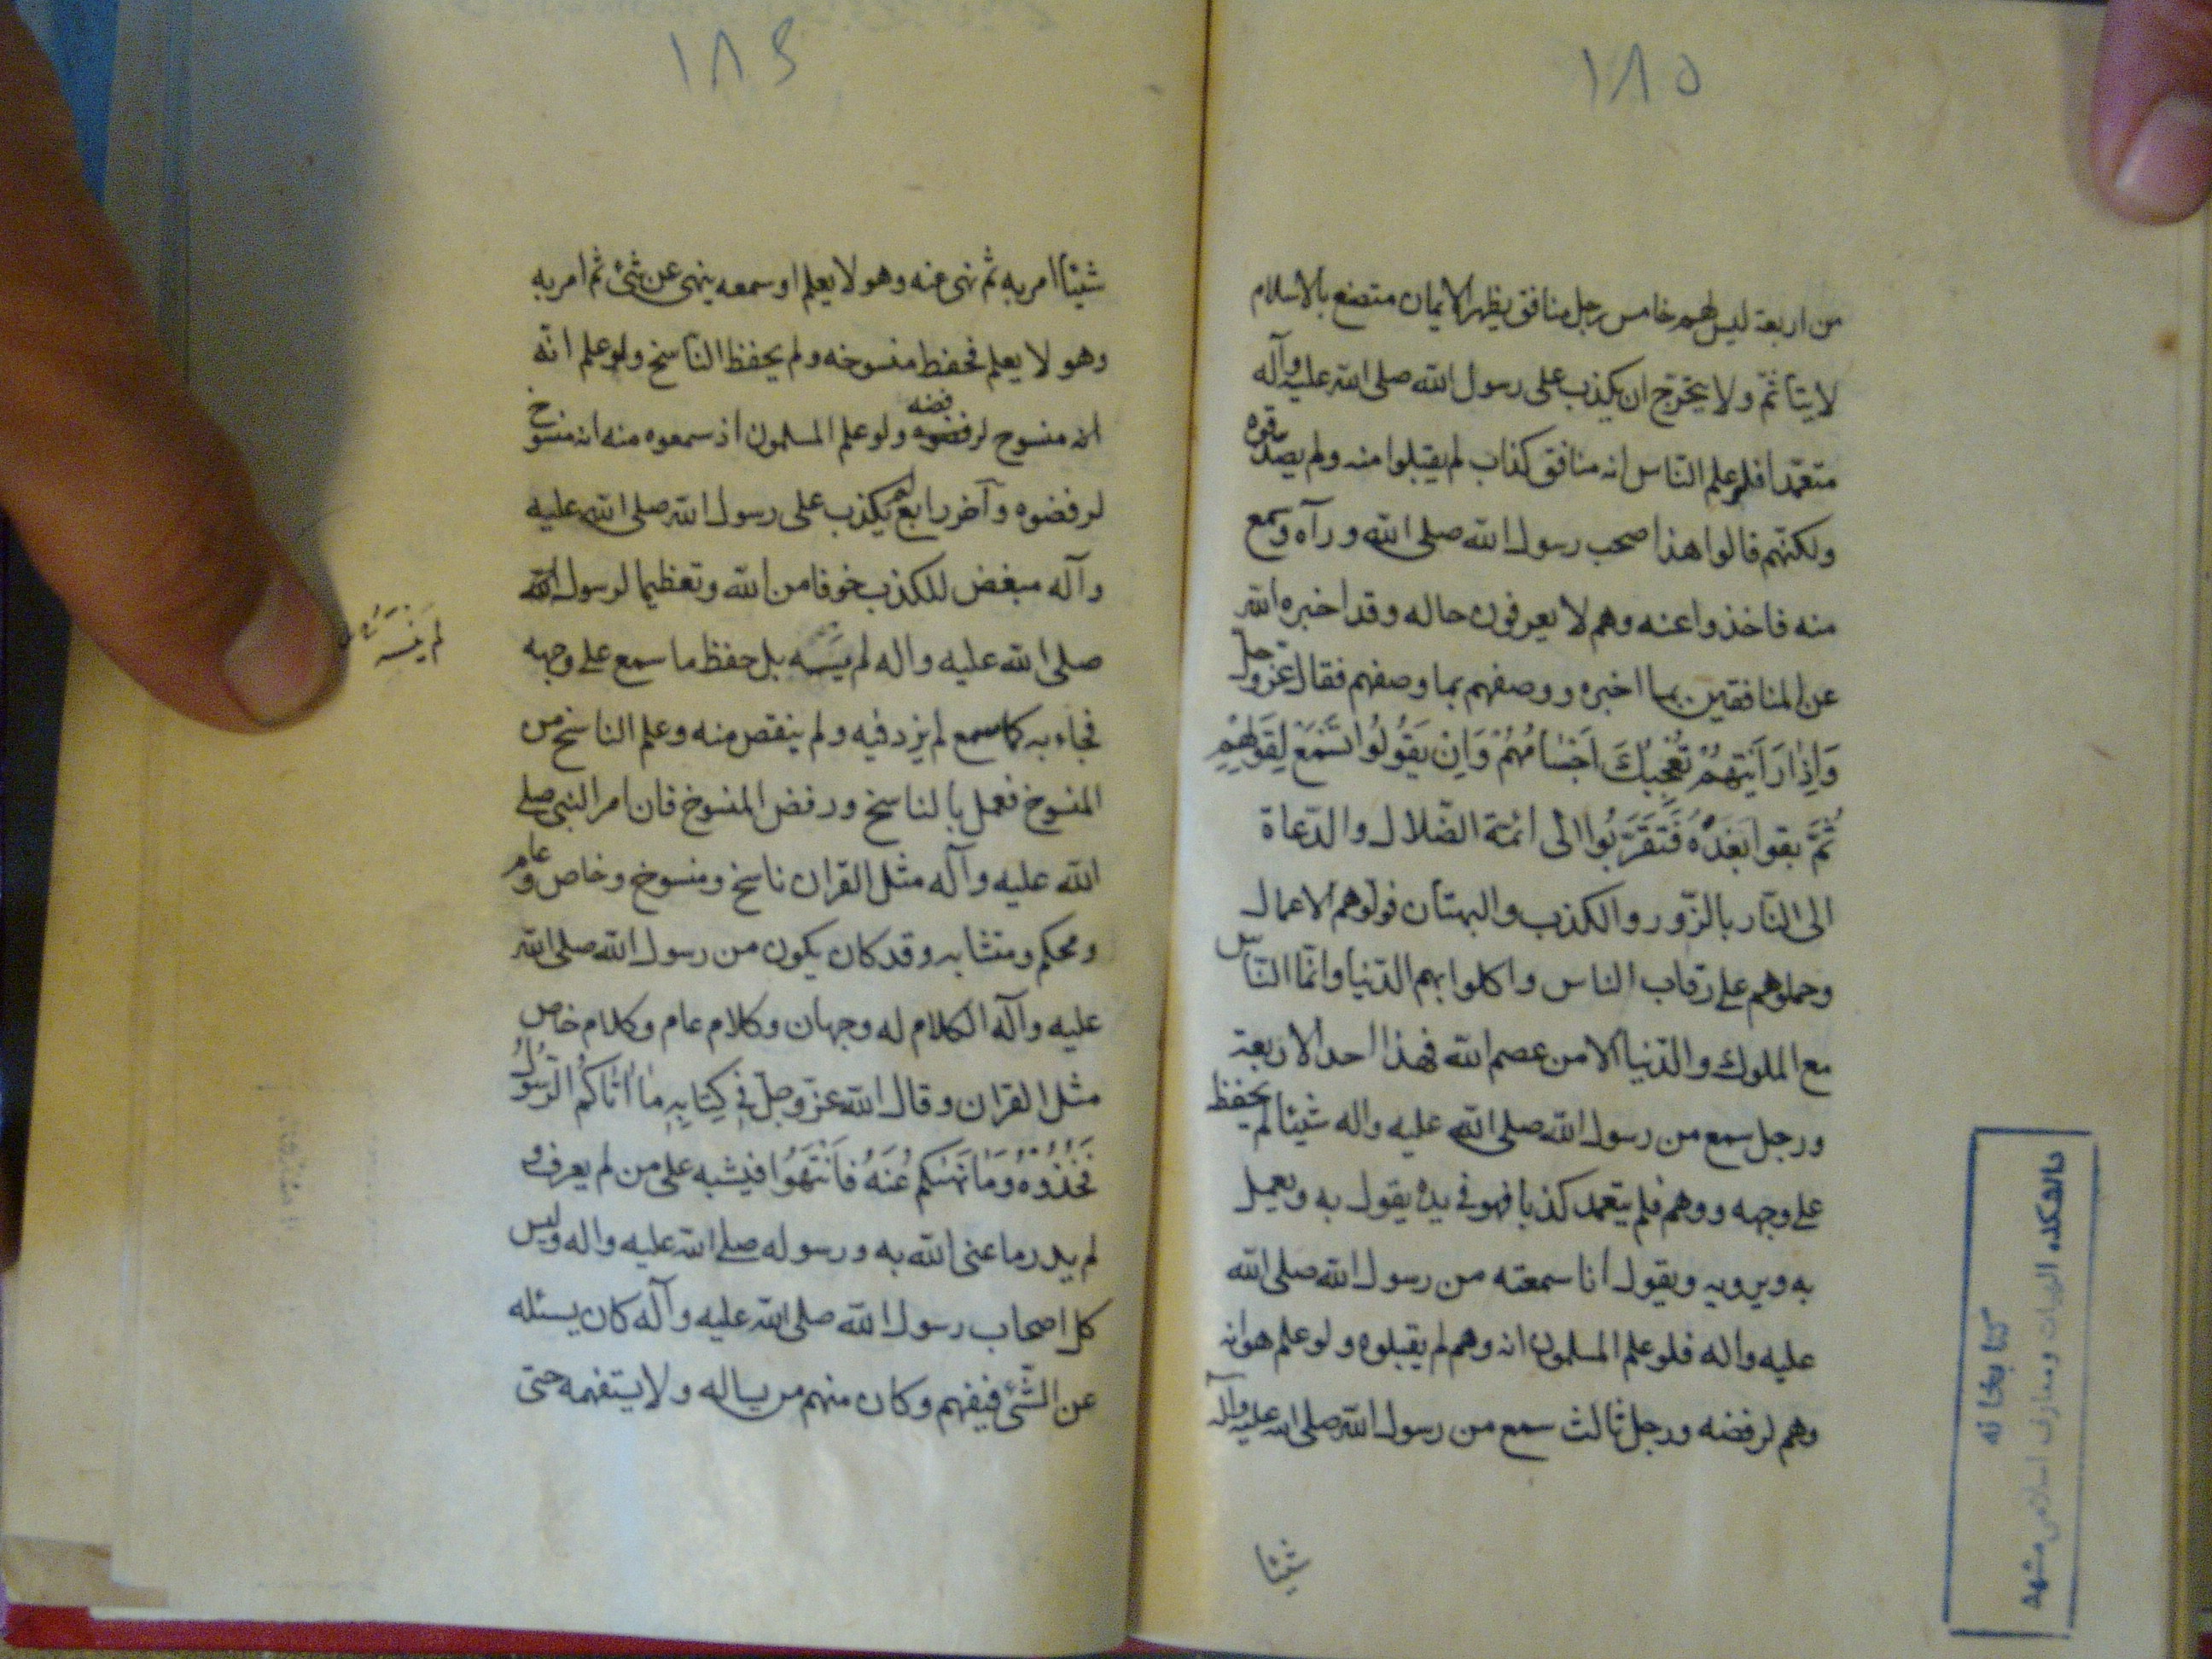 ١٨٥
من اربعة ليس لهم خامس رجل منافق يظهر الايمان متصنع بالاسلام
لا يتأثم ولا يتحرج ان يكذب على رسول الله صلى الله عليه وآله
متعمدا فلو علم الناس انه منافق كذاب لم يقبلوا منه ولم يصدقوه
ولكنهم قالوا هذا صحب رسول الله صلى الله ورآه وسمع
منه فاخذوا عنه وهم لا يعرفون حاله وقد اخبره الله
عن المنافقين بما اخبره ووصفهم بما وصفهم فقال عز وجل
وَاِذَا رَاَيْتَهُمْ تُعْجِبُكَ اَجْسَامُهُمْ وَاِنْ يَقُولُوا تَسْمَعْ لِقَوْلِهِمْ
ثُمَّ بقوا بَعْدَهُ فَتَقَرَّبُوا الى ائمة الضلال والدعاة
الى النار بالزّور والكذب والبهتان فولوهم الاعمال
وحملوهم على رقاب الناس واكلوا بهم الدنيا وانما الناس
مع الملوك والدنيا الا من عصم الله فهذا احد الاربعة
ورجل سمع من رسول الله صلى الله عليه واله شيئا لم يحفظ
على وجهه ووهم فلم يتعمد كذبا فهو في يده يقول به ويعمل
به ويرويه ويقول انا سمعته من رسول الله صلى الله
عليه واله فلو علم المسلمون انه وهم لم يقبلوه ولو علم هو انه
وهم لرفضه ورجل ثالث سمع من رسول الله صلى الله عليه وآله
شيئا
كتابخانه
دانشكده الهيات ومعارف اسلامى مشهد
١٨٤
شيئا امر به ثم نهى عنه وهو لا يعلم او سمعه ينهى عن شئ ثم امر به
وهو لا يعلم فحفظ منسوخه ولم يحفظ الناسخ ولو علم انه
انه منسوخ لرفضوه فضه ولو علم المسلمون اذ سمعوه منه انه منسوخ
لرفضوه وآخر رابع لم يكذب على رسول الله صلى الله عليه
وآله مبغض للكذب خوفا من الله وتعظيما لرسول الله
صلى الله عليه واله لم يسه بل حفظ ما سمع على وجهه
لم ينسه
فجاء به كما سمع لم يزد فيه ولم ينقص منه وعلم الناسخ من
المنسوخ فعمل بالناسخ ورفض المنسوخ فان امر النبى صلى
الله عليه وآله مثل القران ناسخ ومنسوخ وخاص وعام
ومحكم ومتشابه وقد كان يكون من رسول الله صلى الله
عليه وآله الكلام له وجهان وكلام عام وكلام خاص
مثل القران وقال الله عز وجل في كِتَابِهِ مَا اٰتَاكُمُ الرَّسُولُ
فَخُذُوهُ وَمَا نَهٰىكُمْ عَنْهُ فَانْتَهُوا فيشبه على من لم يعرف و
لم يدر ما عنى الله به ورسوله صلى الله عليه واله وليس
كل اصحاب رسول الله صلى الله عليه وآله كان يسئله
عن الشئ فيفهم وكان منهم من يساله ولا يستفهمه حتى